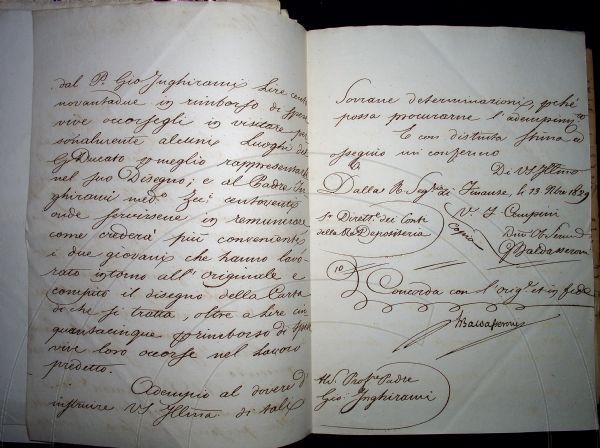 dal P. Gio Inghirami Lire cento
novantadue in rimborso di spese
vive occorsegli in visitare per
sonalmente alcuni Luoghi del
G. Ducato p meglio rappresentarli
nel suo Disegno; e al Padre In
ghirami med.º Zec.ⁱ centoventi
onde servirsene in remunerare
come crederà più conveniente
i due giovani che hanno lavo-
rato intorno all'originale e
compito il disegno della Carta
di che si tratta, oltre a Lire cin
quantacinque p rimborso di spese
vive loro occorse nel Lavoro
predetto.
Adempio al dovere d'
instruire VS Illma di tali
Sovrane determinazioni, pché
possa procurarne l'adempim.to
E con distinta stima a
seguio mi confermo
Di VS Illma
Dalla R. Seg.ria di Finanze, li 13 1829
V. F. Cempini
S.r Dirett.e dei Conti
della R. Depositeria
Copia
G Baldasseroni
Concorda con l'orig.e et in fede
Baldasseroni
Prof.e Padre
Gio: Inghirami